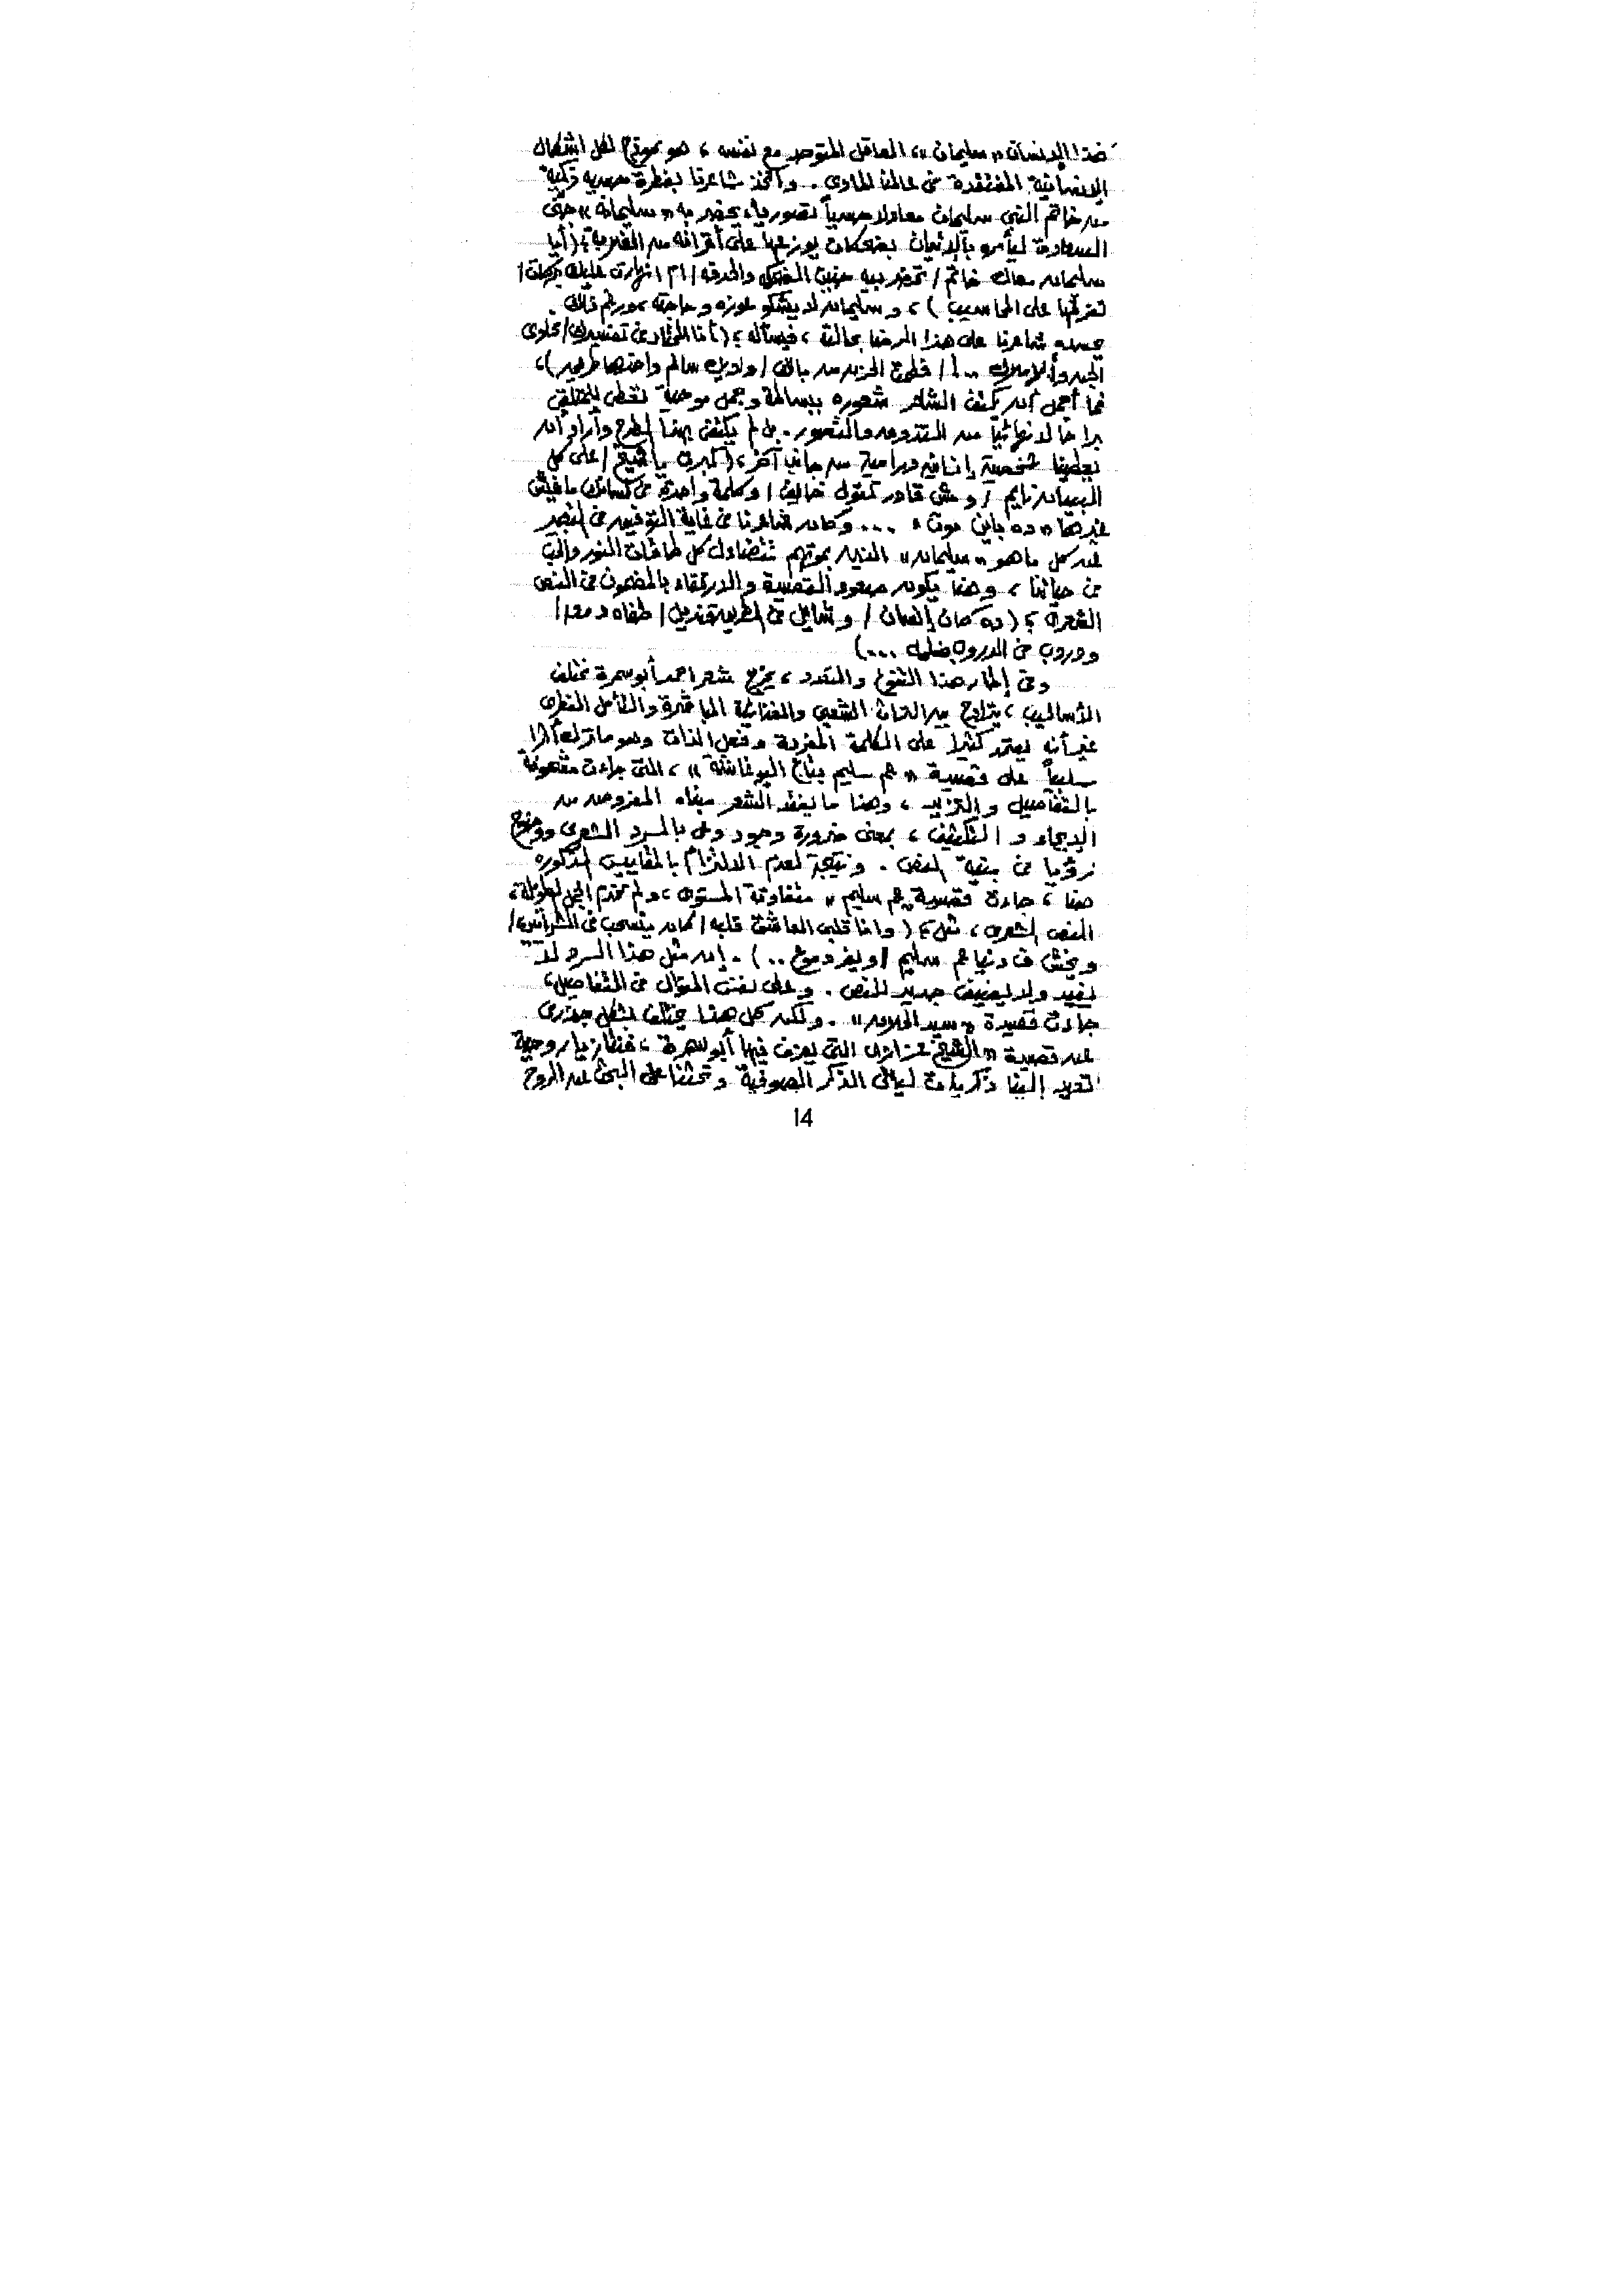 هذا الإنسان «سليمان»، العاقل المتوحد مع نفسه، هو نموذج لكل أشكال
الإنسانية المفتقدة في عالمنا المادي. واتخذ شاعرنا بفطرة ذكية
من خاتم النبي سليمان معادلا حسياً تصورياً، يحضر به «سليمان» جنّى
السعادة ليأمره بالإتيان بضحكات يوزعها على أقرانه من الغلابة؛ (أيا
سليمان معاك خاتم / تحضر بيه جنيّة الضحك والحدقه / ام انهارت عليك بركات /
تفرقها على المحاسيب)، وسليمان لا يشكو عوزه وحاجته، ورغم ذلك
يحسده شاعرنا على هذا الرضا بحاله، فيسأله؛ (أنا اللي
الجن والإملاك ..! / الحزن من بالك / ولا سالم)،
فما أجمل أن يكثف الشاعر شعوره ببساطة وجمل موحية تعطي للمتلقي
براحا لا نهائياً من التذوق والتصور. بل لم يكتفِ بهذا الطرح وأراد أن
يعطينا شخصية إنسانية درامية من جانب آخر، (كبرت يا شيخ / على كل
البيبان نايم / ومش قادر تقول خاليف / وكلمة واحدة في لسانك مافيش
غيرها «ده باين موت» ... وكان شاعرنا في غاية التوفيق في التعبير
عن كل ما هو «سليمان» الذين بموتهم تتضاءل كل طاقات النور والحب
من حياتنا، وهنا يكون صعود القصيدة والارتقاء بالمضمون في النص
الشعري؛ (ده كان إنسان / وشايل في الطريق قنديل / طفاه دمعه /
ودروب في الدروب ضلمه ...)
وفي إطار هذا التنوع والتعدد، يمزج شعر احمد أبو سمرة مختلف
الأساليب، يتراوح بين التراث الشعبي والغنائية المباشرة والتأمل الفطري
غير أنه يعتمد كثيرا على الكلمة المفردة وفعل الذات وهو ما ترك أثرا
سلبياً على قصيدة «عم سليم بتاع البوغاشة»، التي جاءت مشحونة
بالتفاصيل والتزيد، وهنا ما يفقد الشعر صفاء المفروض من
الإيحاء والتكثيف، بمعنى ضرورة وجود وعي بالسرد الشعري ووضوح
الرؤيا في بنية النص. ونتيجة لعدم الالتزام بالمقاييس المذكورة
هنا، جاءت قصيدة «عم سليم» متفاوتة المستوى، ولم تخدم الجمل الطويلة،
النص الشعري، مثل؛ (وانا قلبي العاشق قلبه / كان بتسحب في الشرايين /
ويخش ف دنيا عم سليم / ويفر دموع ..). إن مثل هذا السرد لا
يفيد ولا يضيف جديد للنص. وعلى نفس المنوال في التفاصيل،
جاءت قصيدة «سيد الحلاق». ولكن كل هذا يختلف بشكل جذري
عن قصيدة «الشيخ عزازي» التي يعزف فيها أبو سمرة، فنتازيا روحية
تعيد إلينا ذكريات ليالي الذكر الصوفية وتحثنا على البحث عن الروح
14